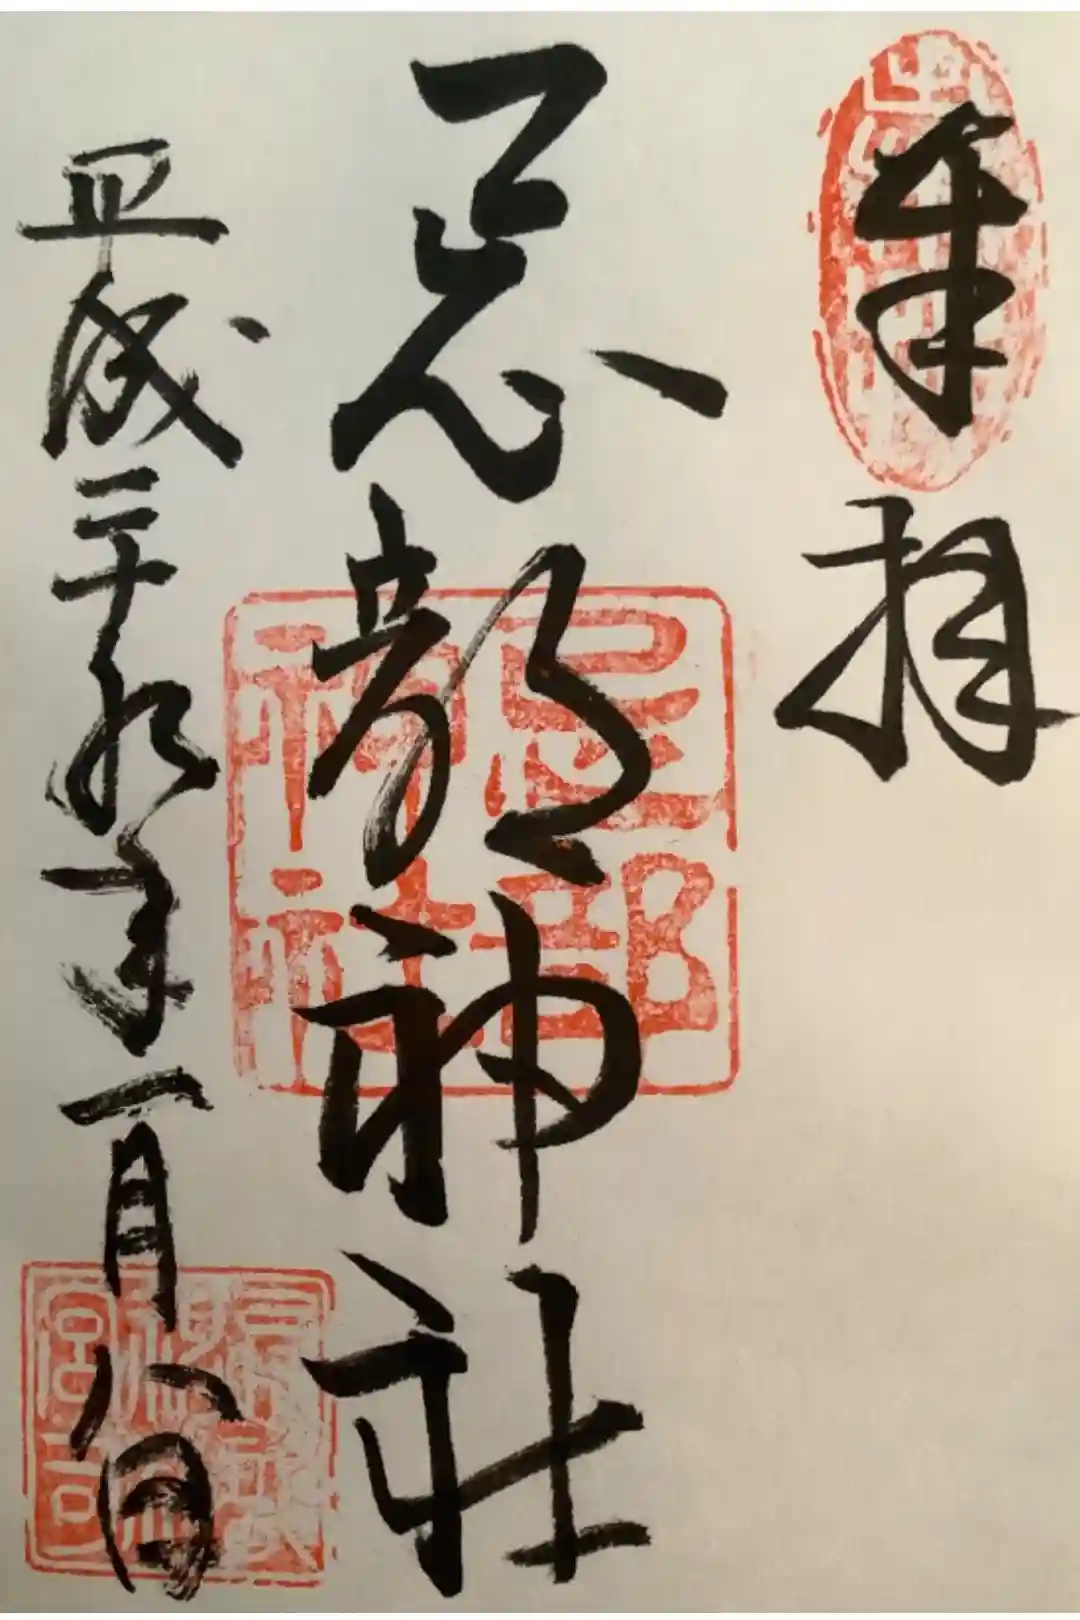 奉拝
忌部神社
平成二十九年一月八日
忌部
神社
宮司